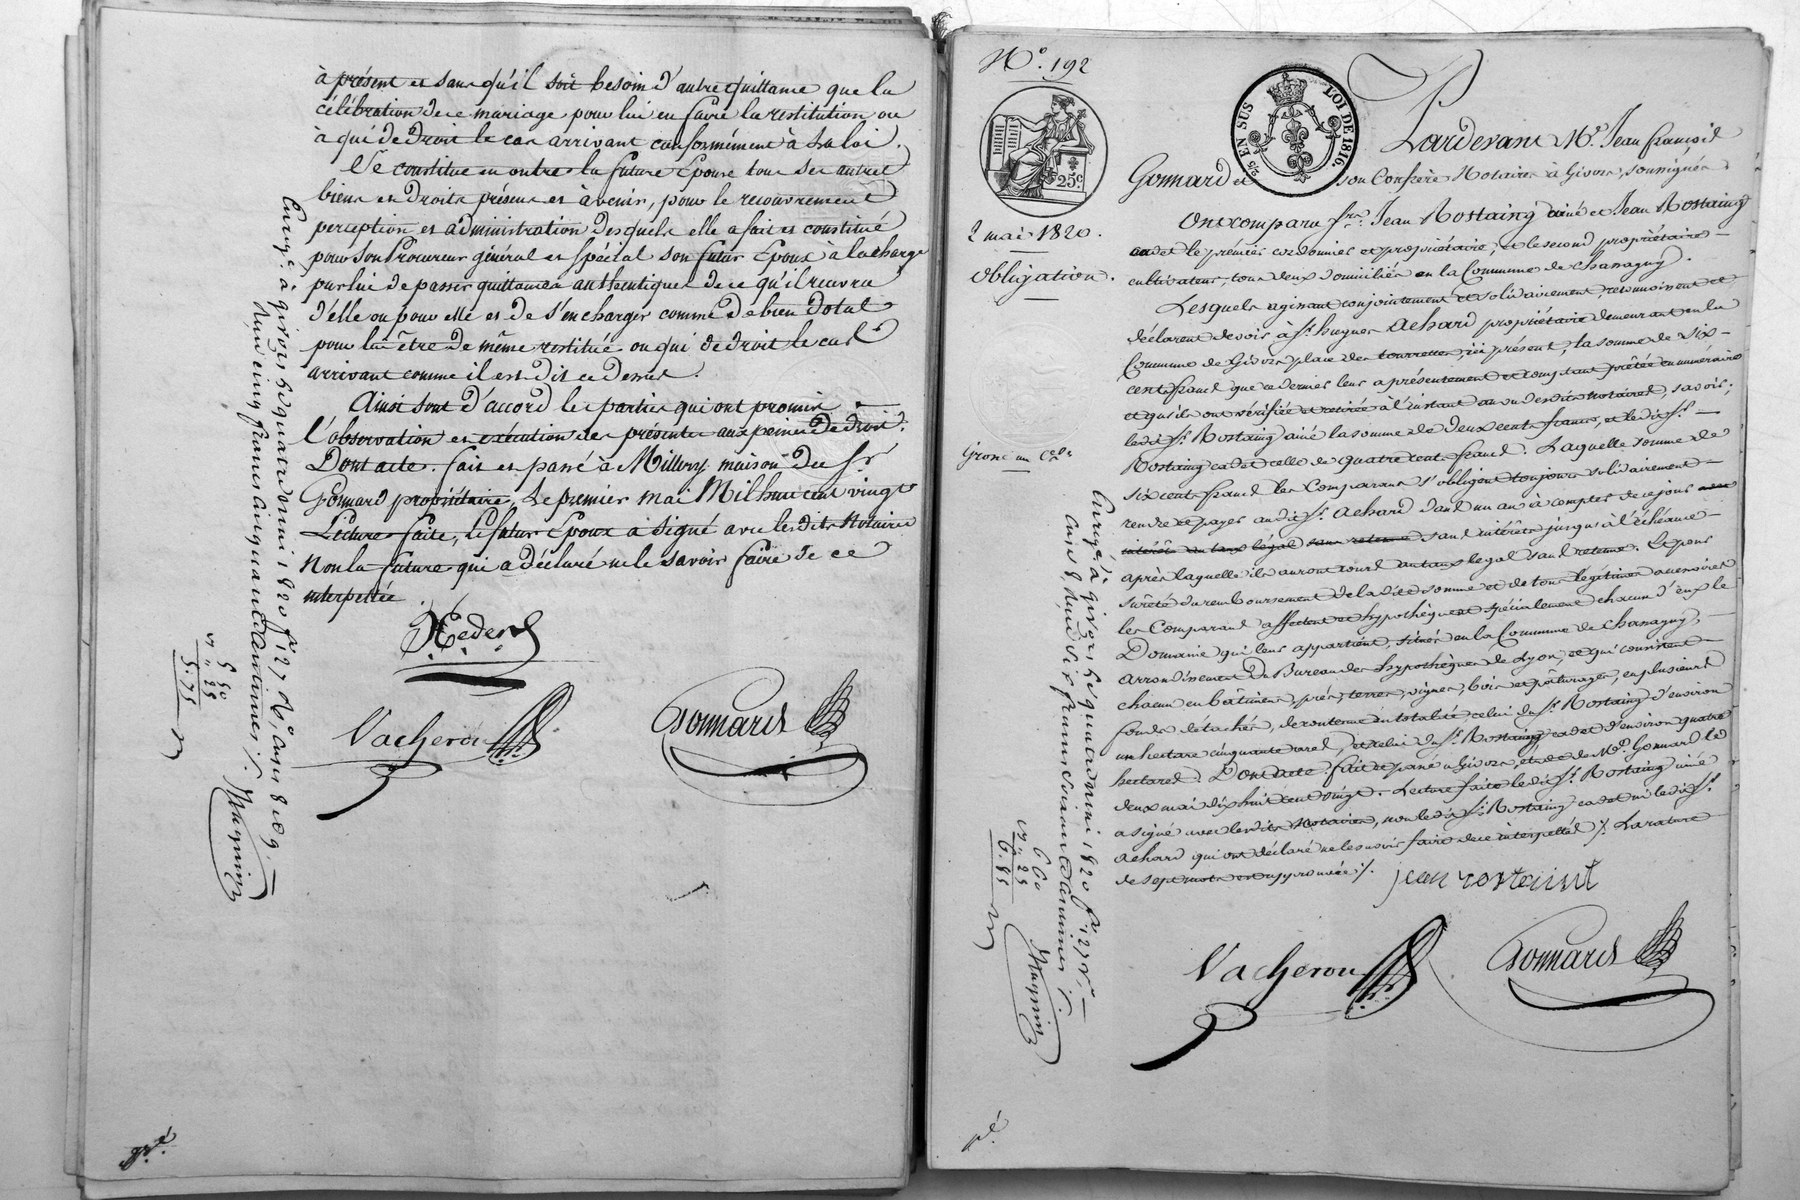 à présent et sans qu'il soit besoin d'autre quittance que la
célébration de ce mariage pour lui en faire la restitution ou
à qui de droit le cas arrivant conformément à la loi.
Se constitue en outre la future Epouse tous ses autres
biens et droits présens et à venir, pour le recouvrement
perception et administration desquels elle a fait et constitué
pour son Procureur général et spécial son futur Epoux à la charge
par lui de passer quittances authentiques de ce qu'il recevra
d'elle ou pour elle et de s'en charger comme de bien dotal
pour lui être de même restitué ou qui de droit le cas
arrivant comme il est dit ce dessus.
Ainsi sont d'accord les parties qui ont promis
l'observation et exécution des présentes aux peines de droit.
Dont acte. fait et passé à Millery maison du Sr.
Gonnard propriétaire, Le premier mai Mil huit cent vingt
Lecture faite, le futur Epoux a signé avec lesdits Notaires
Non la future qui a déclaré ne le savoir faire de ce
interpellée
Vacheron
Gonnard
Enregé. à givors le quatre mai 1820 fo. 127 Vo. cases 8 et 9.
Reçu cinq francs cinquante centimes ./. Magnin
5 50
55
No. 192
EN SUS
LOI DE 1816.
25c.
2 mai 1820.
Obligation.
Pardevant Me. Jean françois
Gonnard et son Confrère Notaires à Givors, soussignés
Ont comparu srs. Jean Rostaing ainé et Jean Rostaing
cadet le premier cordonnier et propriétaire, et le second propriétaire
cultivateur, tous deux domiciliés en la Commune de Chassagny.
Lesquels agissant conjointement et solidairement, reconnoissent et
déclarent devoir à Sr. hugues Achard propriétaire demeurant en la
Commune de Givors place des tourrettes, ici présent, la somme de six
cents francs que ce dernier leur a présentement et comptant prêtée en numéraire
et qu'ils ont vérifiée et retirée à l'instant au vu desdits notaires, savoir;
ledit Sr. Rostaing ainé la somme de deux cents francs, et ledit Sr.
Rostaing cadet celle de quatre cents francs. Laquelle somme de
six cents francs les Comparans s'obligent toujours solidairement
rendre et payer audit Sr. Achard dans un an à compter de ce jour
intérêts au taux légal sans retenue sans intérêts jusqu'à l'échéance
après laquelle ils auront cours au taux legal sans retenue. Et pour
sureté du remboursement de ladite somme et de tous légitimes accessoires
les Comparans affectent et hypothèquent spécialement chacun d'eux le
Domaine qui leur appartient, situés en la Commune de Chassagny,
arrondissement du Bureau des hypothèques de Lyon, et qui consistent
chacun en bâtimens, prés, terres, vignes, bois et paturages, en plusieurs
fonds détachés, de contenue en totalité, celui du Sr. Rostaing d'environ
un hectare cinquante ares, et celui du Sr. Rostaing cadet d'environ quatre
hectares. Dont acte. fait et passé à Givors, étude de Me. Gonnard le
deux mai dix huit cent vingt. Lecture faite ledit Sr. Rostaing ainé
a signé avec lesdits Notaires, non ledit Sr. Rostaing cadet ni ledit Sr.
Achard qui ont déclaré ne le savoir faire de ce interpellés ./. La rature
de sept mots est approuvée ./.
Vacheron
Gonnard
Enregé. à givors le quatre mai 1820 fo. 127 Vo.
case 8, Reçu six francs soixante centimes ./. Magnin
6 60
6.85